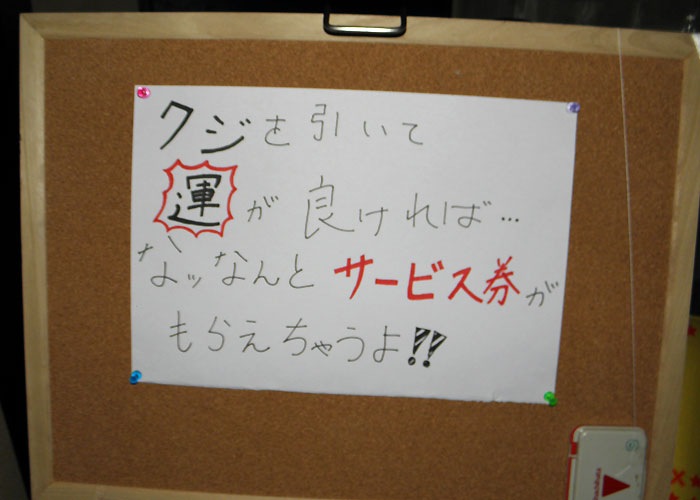 クジを引いて
運が良ければ…
なッなんとサービス券が
もらえちゃうよ!!